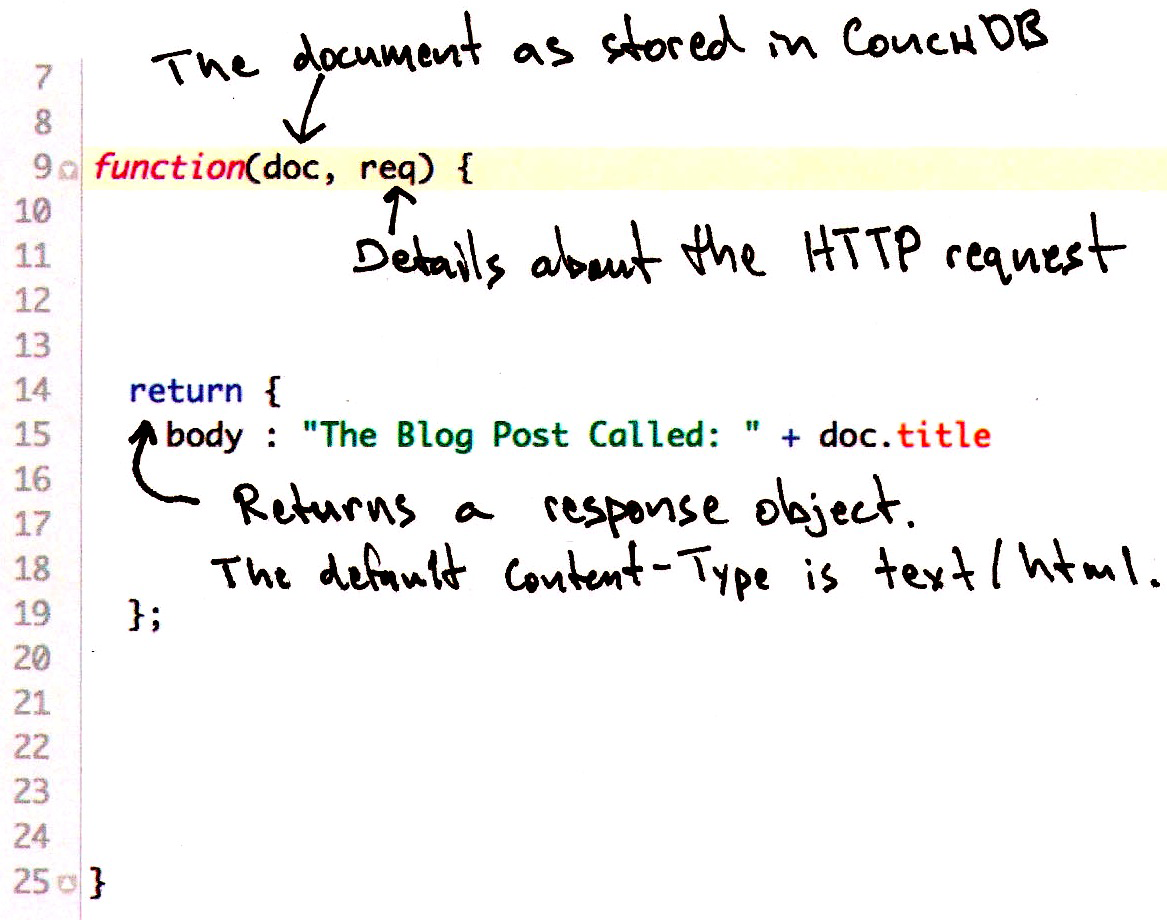 The document as stored in CouchDB
7
8
9 function(doc, req) {
10
Details about the HTTP request
11
12
13
14 return {
15 body : "The Blog Post Called: " + doc.title
16
Returns a response object.
17
The default Content-Type is text/html.
18
19 };
20
21
22
23
24
25 }